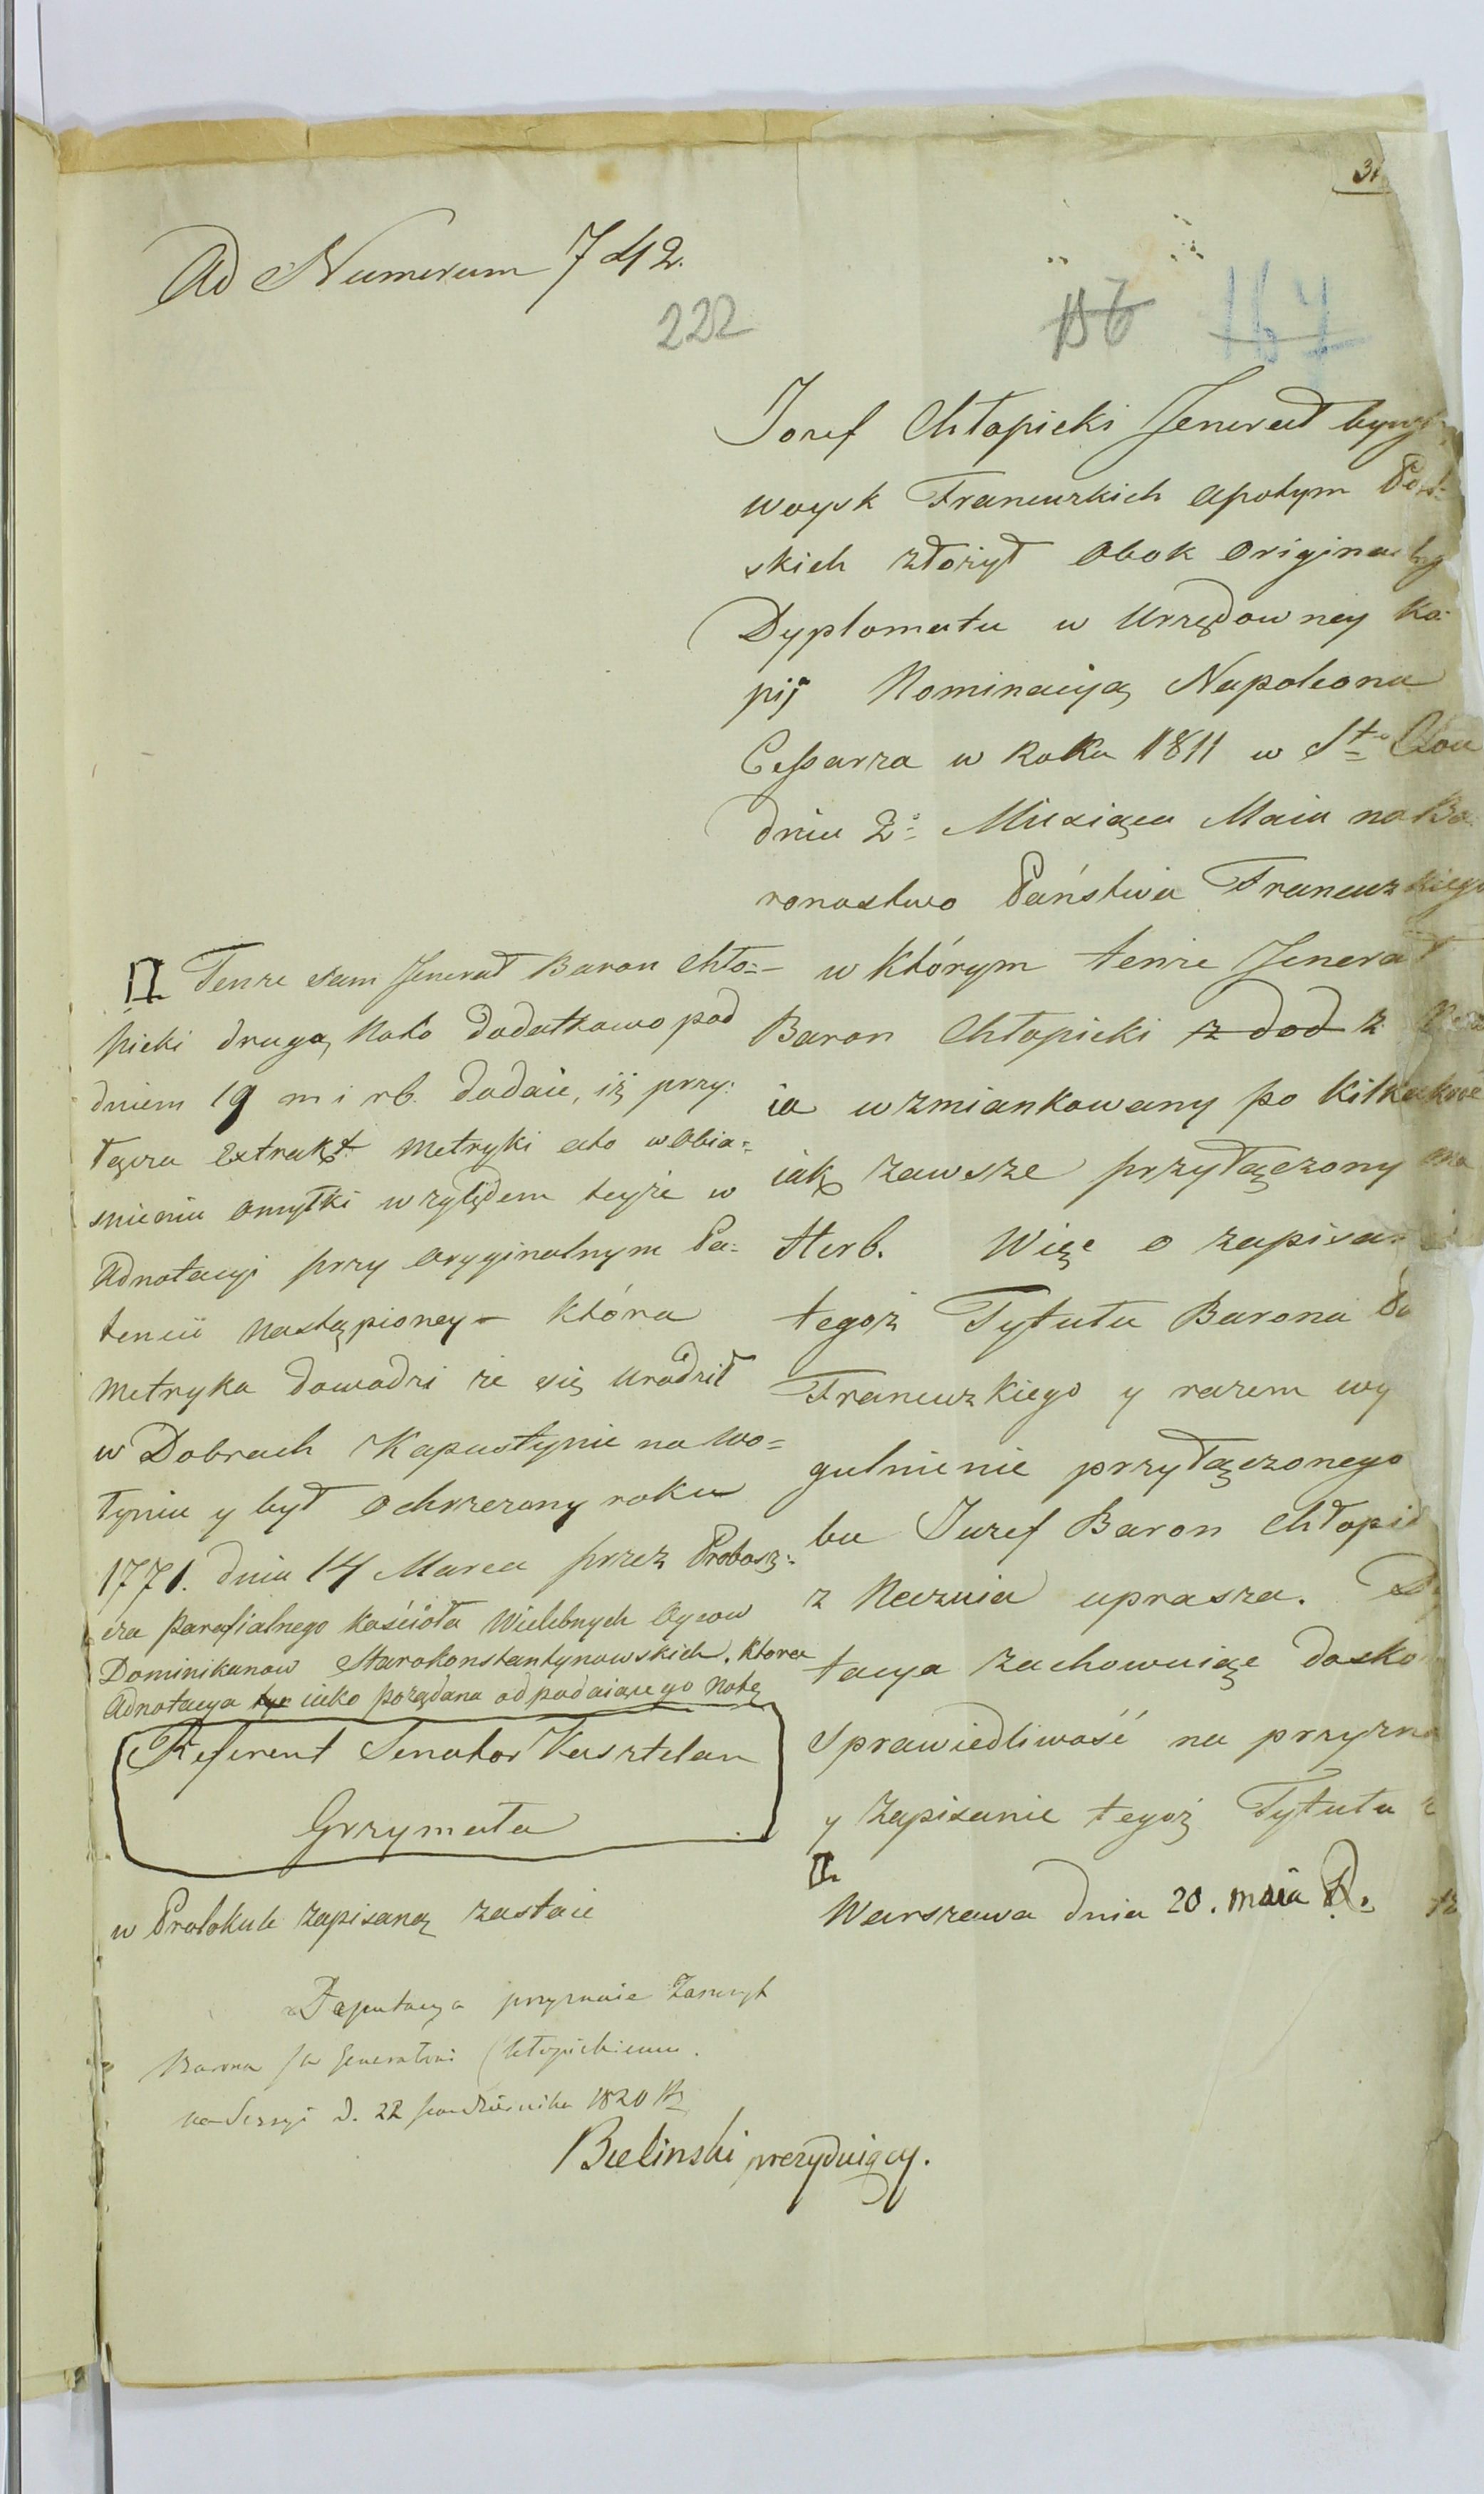 Ad Numerum 742.
222
167
Jozef Chłopicki Jenerał
woysk Francuzkich apotym Pol-
skich złożył obok
Dyplomatu w Urzędowney Ko-
pij Nominacyą Napoleona
Cessarza w Roku 1811 w St. Clou
dniu 2º Miesiąca Maia na Ba-
ronostwo Państwa Francuzkiego
w którym tenże Jenerał
Baron Chłopicki z dod z
ia wzmiankowany po
iak zawsze przyłączony ma
Herb. Więc o
tegoż Tytułu Barona
Francuzkiego y razem wy
gulnienie przyłączonego
bu Juzef Baron
z Neczuia uprasza.
tacya zachowuiąc
sprawiedliwość na
y zapisanie tegoż Tytułu
Warszawa dnia 20. maia R.
Tenże sam Jenerał Baron Chło-
picki drugą Noto dodatkowo pod
dniem 19 m i rb. dodaie, iż przy-
łącza Extrakt metryki ato wobia-
snieniu omyłki względem teyże w
Adnotacyi przy oryginalnym Pa-
tencii nastąpioney - która
metryka dowodzi że się urodził
w Dobrach Kapustynie na Wo-
łyniu y był ochrzczony roku
1771. dnia 14 Marca przez Probosz-
cza parafialnego kościoła Wielebnych Oycow
Dominikanow Starokonstantynowskich. Ktora
Adnotacya tyc iako pożądana od podaiącego Notę
Referent Senator Kasztelan
Grzymała
w Protokule zapisaną zostaie
Deputacya przyznaie Zaszczyt
Barona Jw Generałowi Chłopickiemu.
na Sessyi d. 22 października 1820 R.
Bielinski prezyduiący.